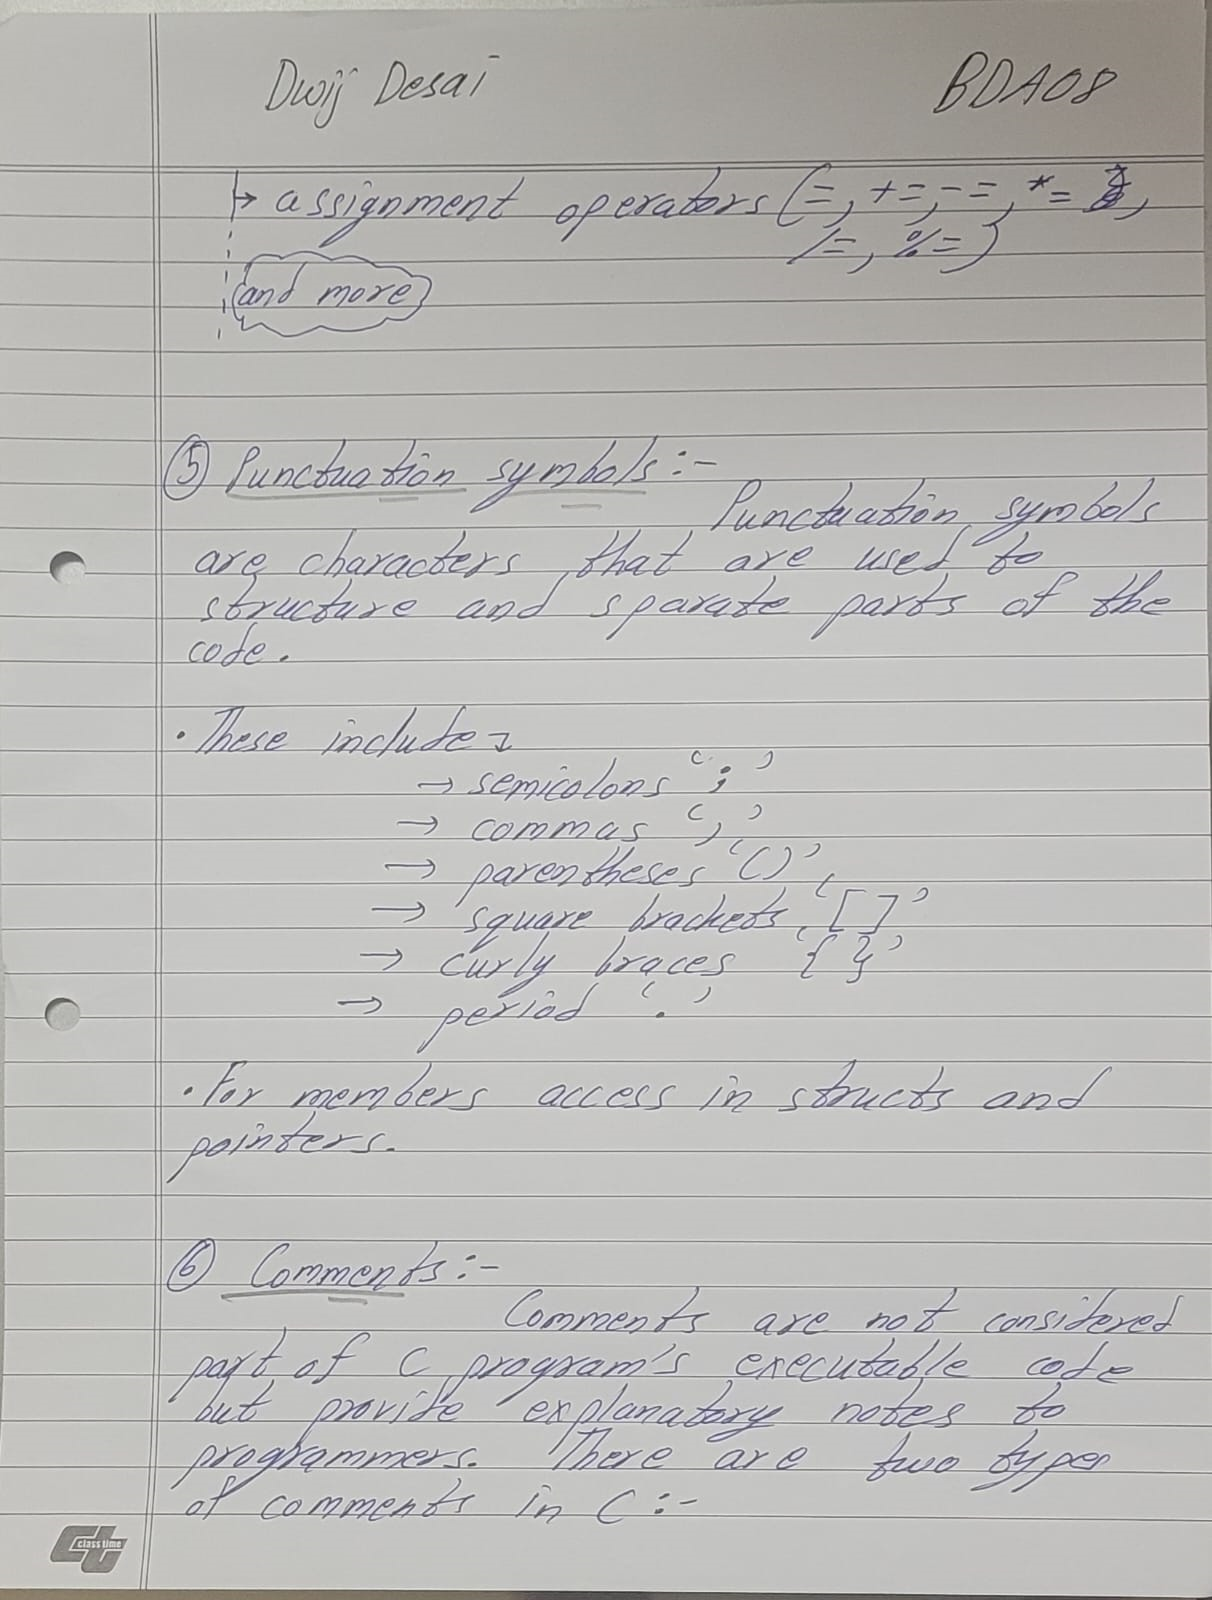 Dwij Desai BDA08
↳ assignment operators (=, +=, -=, *=,
/=, %=)
(and more)
⑤ Punctuation symbols :-
Punctuation symbols
are characters that are used to
structure and sparate parts of the
code.
• These include
→ semicolons ';'
→ commas ','
→ parentheses '()'
→ square brackets '[ ]'
→ curly braces '{ }'
→ period '.'
• For members access in structs and
pointers.
⑥ Comments :-
Comments are not considered
part of C program's executable code
but provide explanatory notes to
programmers. There are two types
of comments in C :-
ct class time